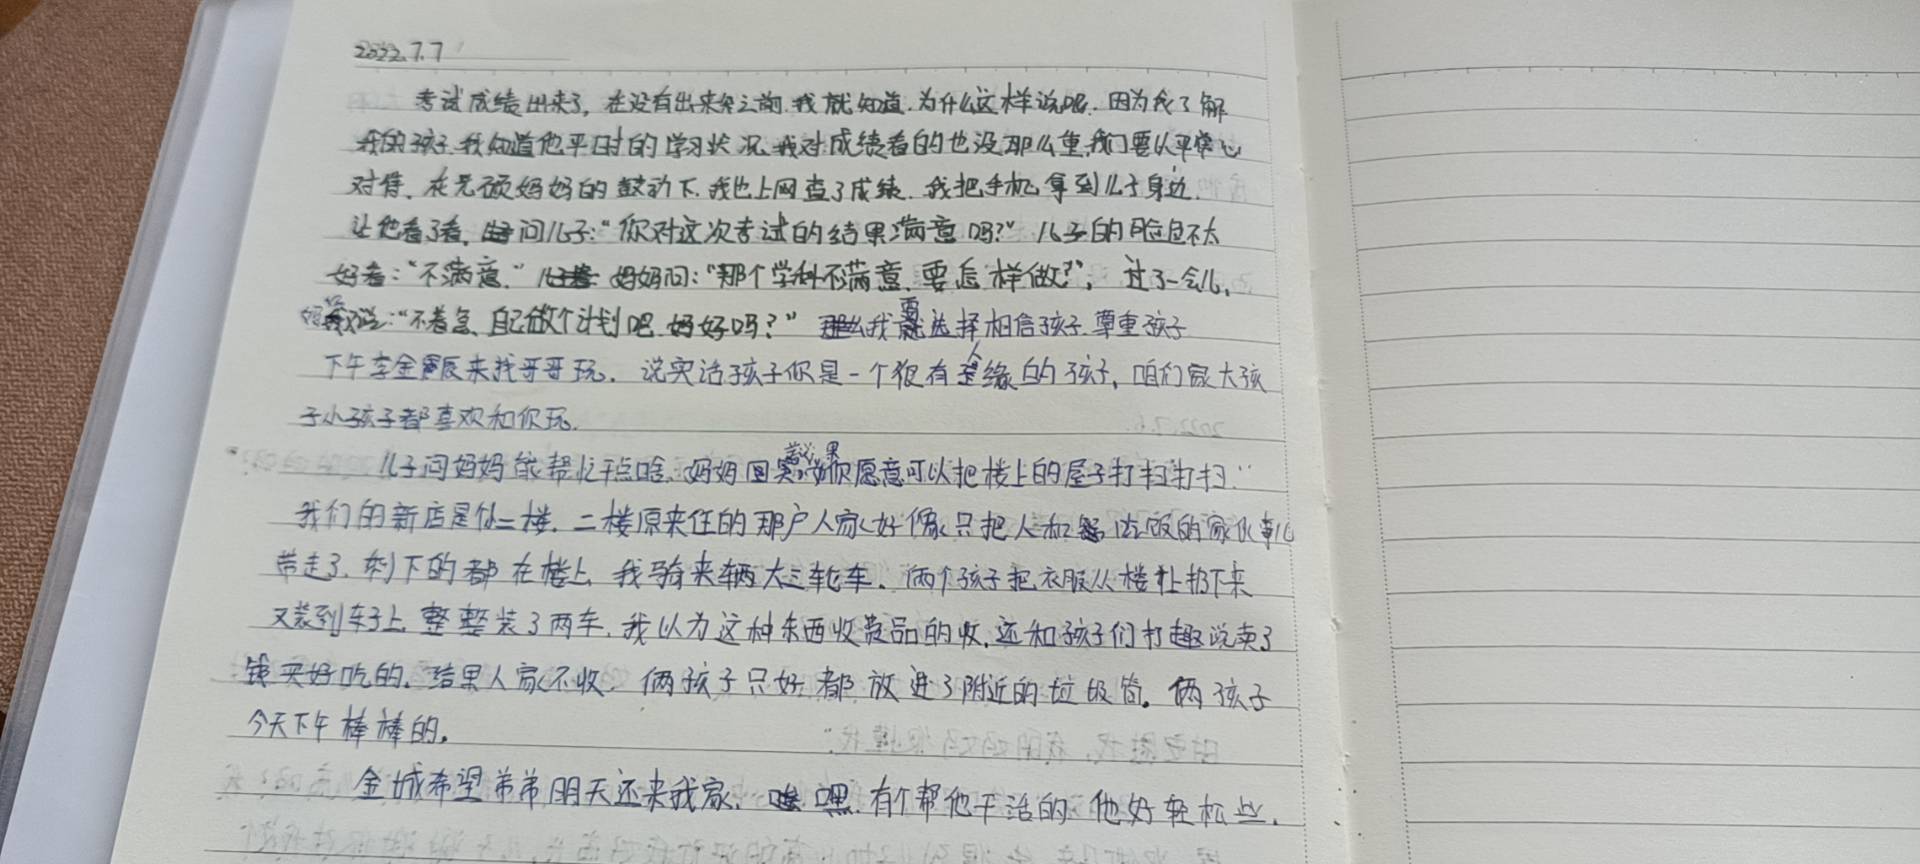 2022.7.7
考试成绩出来了,在没有出来之前.我就知道.为什么这样说呢.因为我了解
我的孩子.我知道他平时的学习状况.我对成绩看的也没那么重,我们要以平常心
对待.在元硕妈妈的鼓动下.我也上网查了成绩.我把手机拿到儿子身边.
让他看了看,问儿子:“你对这次考试的结果满意吗?”儿子的脸色不太
好看:“不满意.”妈妈问:“那个学科不满意.要怎样做?”,过了一会儿,
说:“不着急.自己做个计划吧.好吗?”我要选择相信孩子.尊重孩子
下午李金来找哥哥玩.说实话孩子你是一个很有人缘的孩子,咱们家大孩
子小孩子都喜欢和你玩.
儿子问妈妈能帮忙干点啥.妈妈回答说:如果你愿意可以把楼上的屋子打扫打扫.”
我们的新店是仩二楼.二楼原来住的那户人家好像只把人和吃饭的家伙事儿
带走了.剩下的都在楼上.我骑来辆大三轮车.俩个孩子把衣服从楼上扔下来
又装到车子上.整整装了两车.我以为这种东西收费品的收.还和孩子们打趣说卖了
钱买好吃的.结果人家不收.俩孩子只好都放进了附近的垃圾筒。俩孩子
今天下午棒棒的.
金城希望弟弟明天还来我家.嘿.有个帮他干活的.他好轻松些.